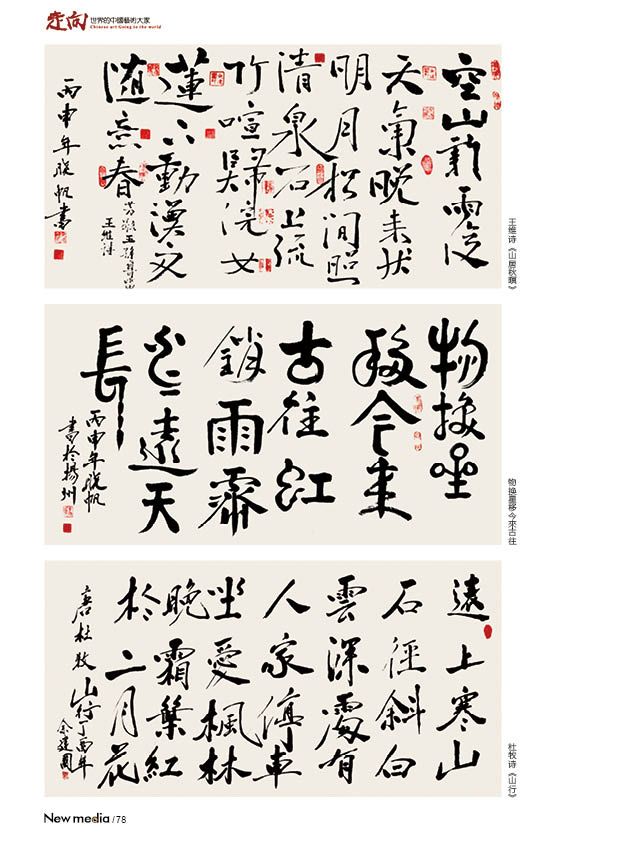 走向 世界的中國藝術大家
Chinese art Going to the world
空山新雨後
天氣晚来秋
明月松间照
清泉石上流
竹喧歸浣女
蓮下動
随意春
芳歇王孫
王维詩
丙申年
帆書
王维诗《山居秋暝》
物换星
移今来
古往江
銷雨霁
遠天
長
丙申年
帆
書於揚州
物换星移今來古往
遠上寒山
石徑斜白
雲深處有
人家停車
坐愛楓林
晚霜葉紅
於二月花
唐杜牧
山行丁酉年
余建國
杜牧诗《山行》
New media / 78